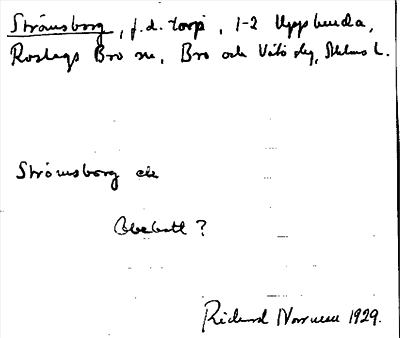 Strömsborg, f.d. torp, 1-2 Uppsbunda,
Roslags Bro sn, Bro och Vätö slg, Sthlms l.
Strömsborg ek
Obebott?
Rickard Norrman 1929.